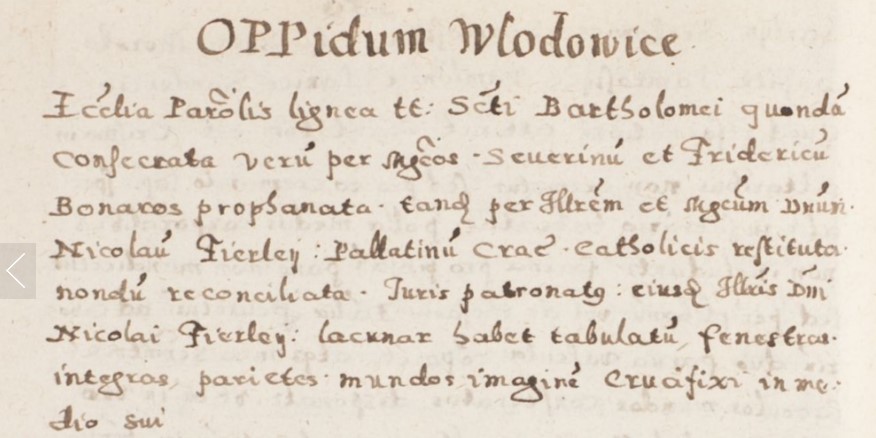 OPPidum Wlodowice
Ecćlia Parõlis lignea tt: Sćti Bartholomei quondã
Consecrata verũ per Mgc̃os Seuerinũ et Fridericũ
Bonaros prophanata. tandę per Illrẽm et Mgcũm Dnũm
Nicolaũ Fierleij: Pallatinũ Crac̃. Catholicis restituta.
nondũ reconciliata. Juris patronatꝯ: eiusdę Illris Dñi
Nicolai Fierleij: lacunar habet tabulatũ, fenestras.
integras, parietes mundos, imaginẽ Crucifixi in me-
dio sui